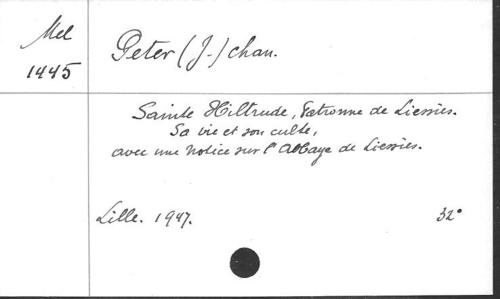 Mel
1445
Peter (J.) chan.
Sainte Hiltrude, Patronne de Liessies.
Sa vie et son culte,
avec une notice sur l'Abbaye de Liessies.
Lille. 1947.
32°